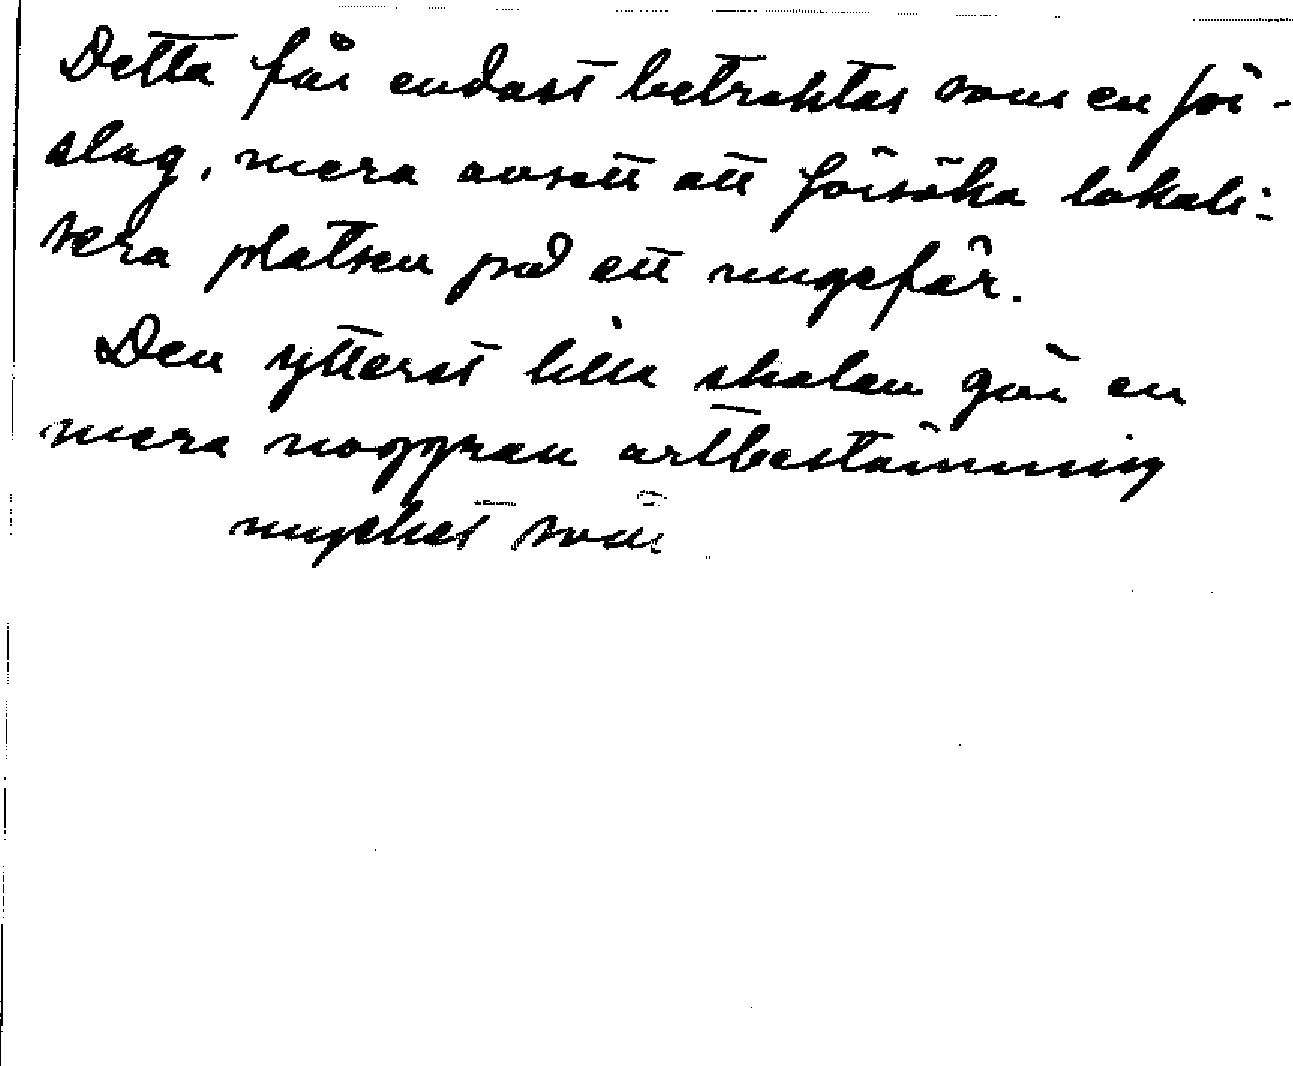 Detta får endast betraktas som en för-
slag, mera avsett att försöka lokali-
sera platsen på ett ungefär.
Den ytterst lilla skalan gör en
mera noggran artbestämning
mycket svår